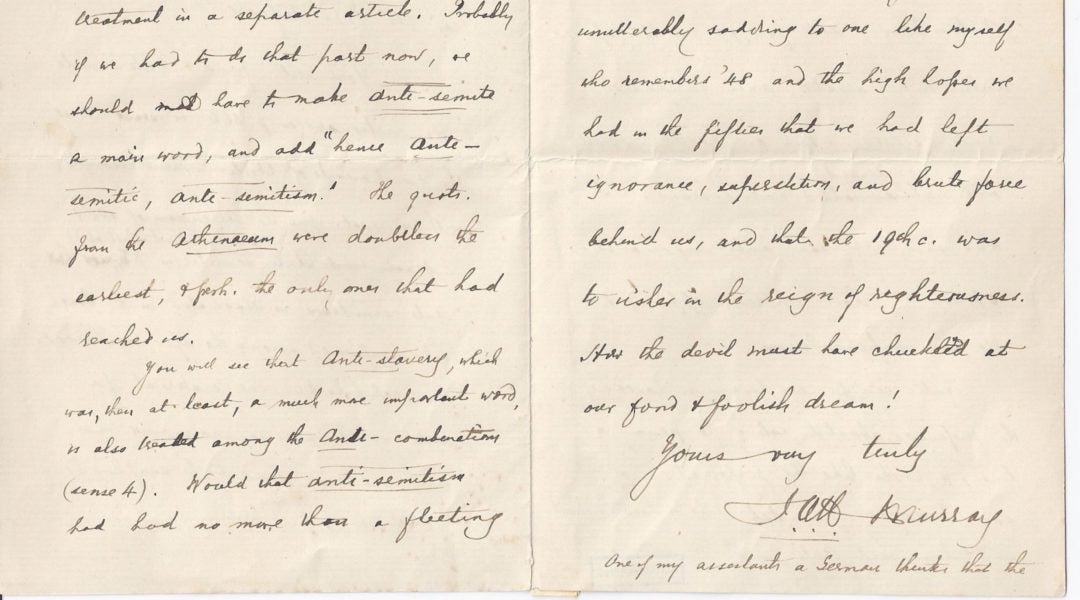 treatment in a separate article. Probably
if we had to do that part now, we
should have to make anti-semite
a main word, and add "hence anti-
semitic, anti-semitism." The quots.
from the Athenaeum were doubtless the
earliest, & perh. the only ones that had
reached us.
You will see that Anti-slavery, which
was, then at least, a much more important word,
is also treated among the Anti- combinations
(sense 4). Would that anti-semitism
had had no more than a fleeting
unutterably saddening to one like myself
who remembers '48 and the high hopes we
had in the fifties that we had left
ignorance, superstition, and brute force
behind us, and that the 19th c. was
to usher in the reign of righteousness.
How the devil must have chuckled at
our fond & foolish dream!
Yours very truly
J A H Murray
One of my assistants a German thinks that the